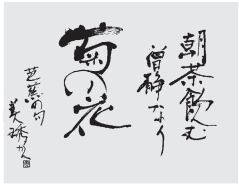 朝茶飲む
僧静なり
菊の花
芭蕉の句
美琇かく